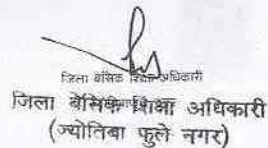 जिला बेसिक शिक्षा अधिकारी
जिला बेसिक शिक्षा अधिकारी
(ज्योतिबा फुले नगर)